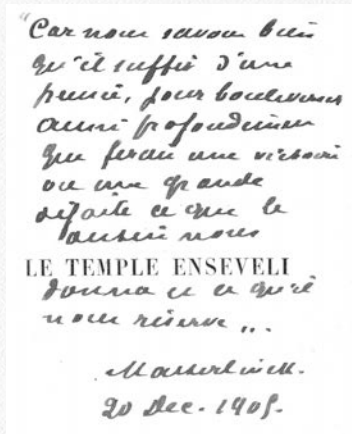 "Car nous savons bien
qu'il suffit d'une
pensée, pour bouleverser
aussi profondément
que ferait une victoire
ou une grande
défaite ce que le
destin nous
LE TEMPLE ENSEVELI
donna et ce qu'il
nous réserve...
Maeterlinck.
20 Dec. 1905.